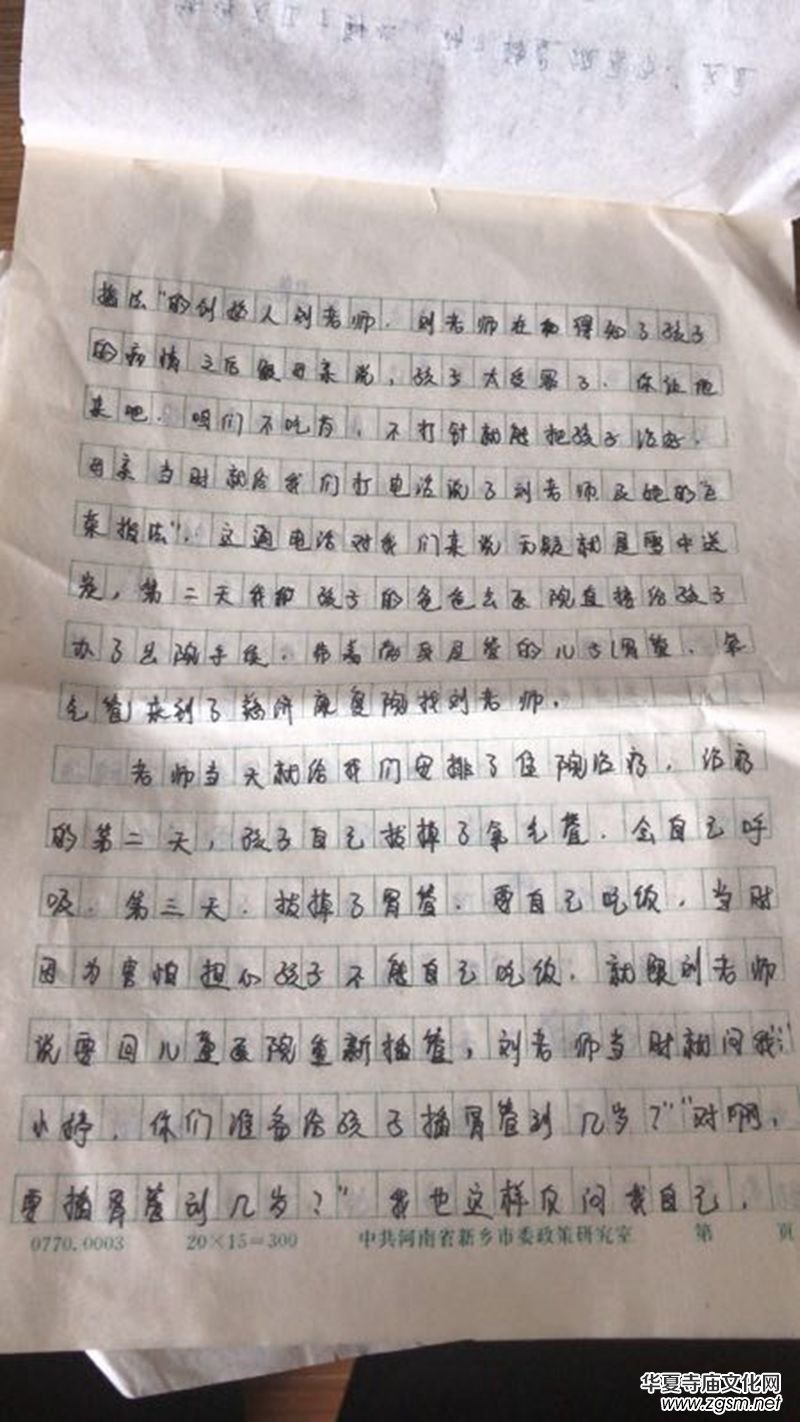 指法"的创始人刘老师.刘老师在和得知了孩子
的病情之后跟母亲说,孩子太受罪了.你让他
来吧.咱们不吃药,不打针就能把孩子治好.
母亲当时就给我们打电话说了刘老师及她的"
奕指法".这通电话对我们来说无疑就是雪中送
炭,第二天我和孩子的爸爸去医院直接给孩子
办了出院手续.带着满是管的儿子(胃管.氧
气管)来到了 康复院找刘老师.
老师当天就给我们安排了住院治疗.治疗
的第二天,孩子自己拔掉了氧气管.会自己呼
吸.第三天.拔掉了胃管.要自己吃饭.当时
因为害怕担心孩子不能自己吃饭.就跟刘老师
说要回儿童医院重新插管,刘老师当时就问我:"
小 .你们准备给孩子插胃管到几岁?""对啊,
要插胃管到几岁?"我也这样反问我自己,
0770.0003 20×15=300 中共河南省新乡市委政策研究室 第 页
华夏寺庙文化网
www.zgsm.net